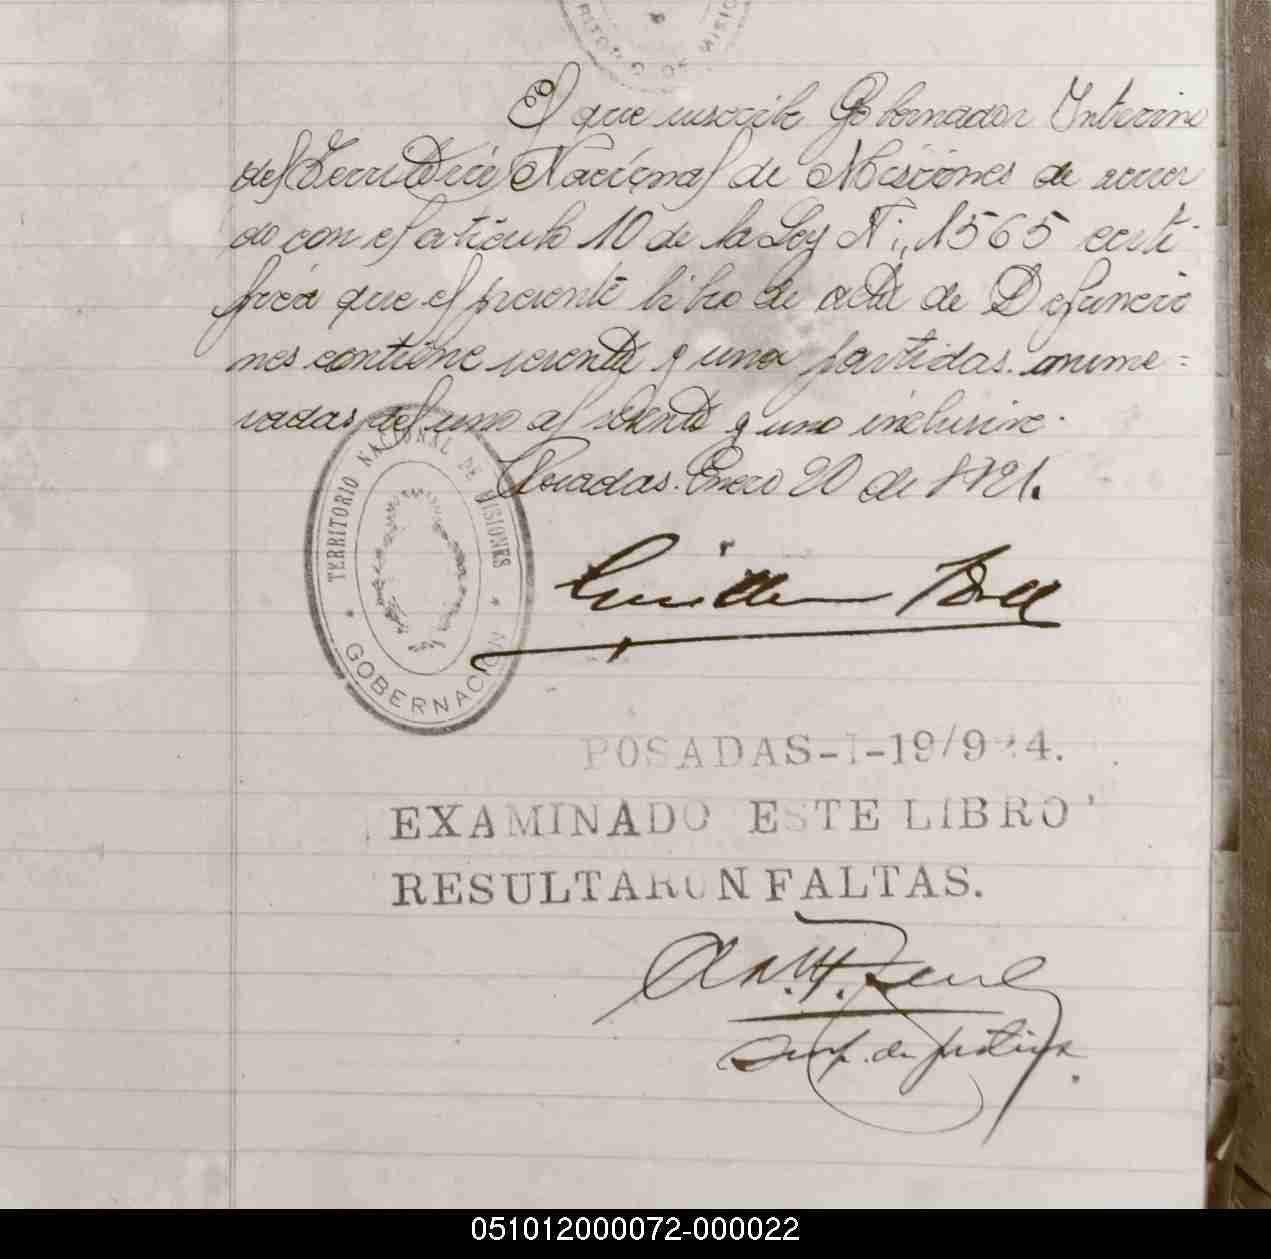 RITORIO DE MISIO
El que suscribe Gobernador Interino
del Territorio Nacional de Misiones de acuer
do con el articulo 10 de la Ley N: 1565 certi-
fica que el presente libro de acta de Defuncio
nes contiene sesenta y una partidas. nume=
radas del uno al sesenta y uno inclusive.
Posadas. Enero 20 de 1921.
TERRITORIO NACIONAL DE MISIONES
* GOBERNACION *
Guillermo
POSADAS-I-19/924.
EXAMINADO ESTE LIBRO
RESULTARON FALTAS.
Insp. de Justicia.
051012000072-000022